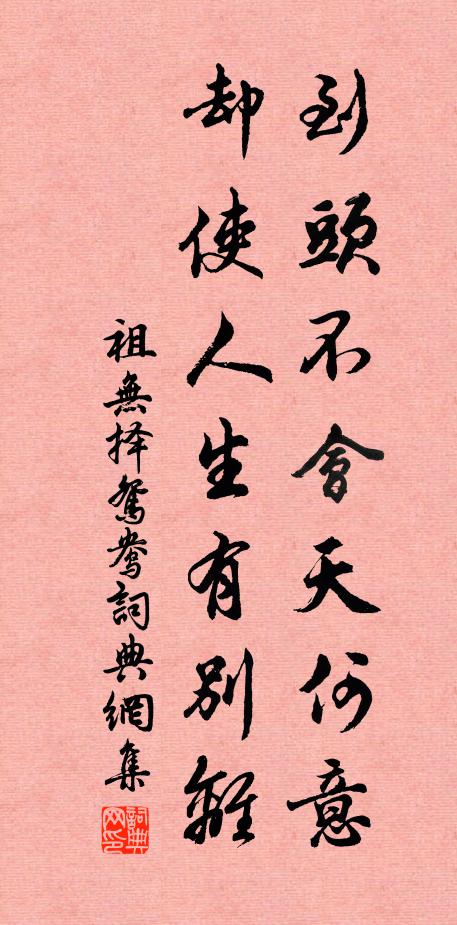 到頭不會天何意
却使人生有別離
祖無择鴛鴦詞典網集
詞典网印